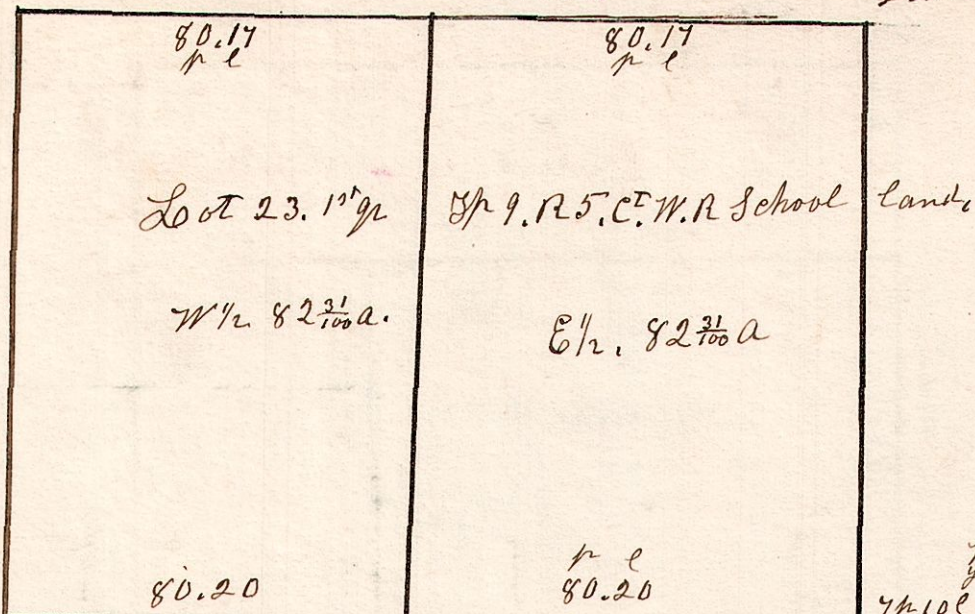 80.17 80.17
p l p l
Lot 23. 1st qr Tp 9. R 5. Ct. W. R School land,
W 1/2 82 31/100 a.
E 1/2. 82 31/100 a
p l
80.20 80.20